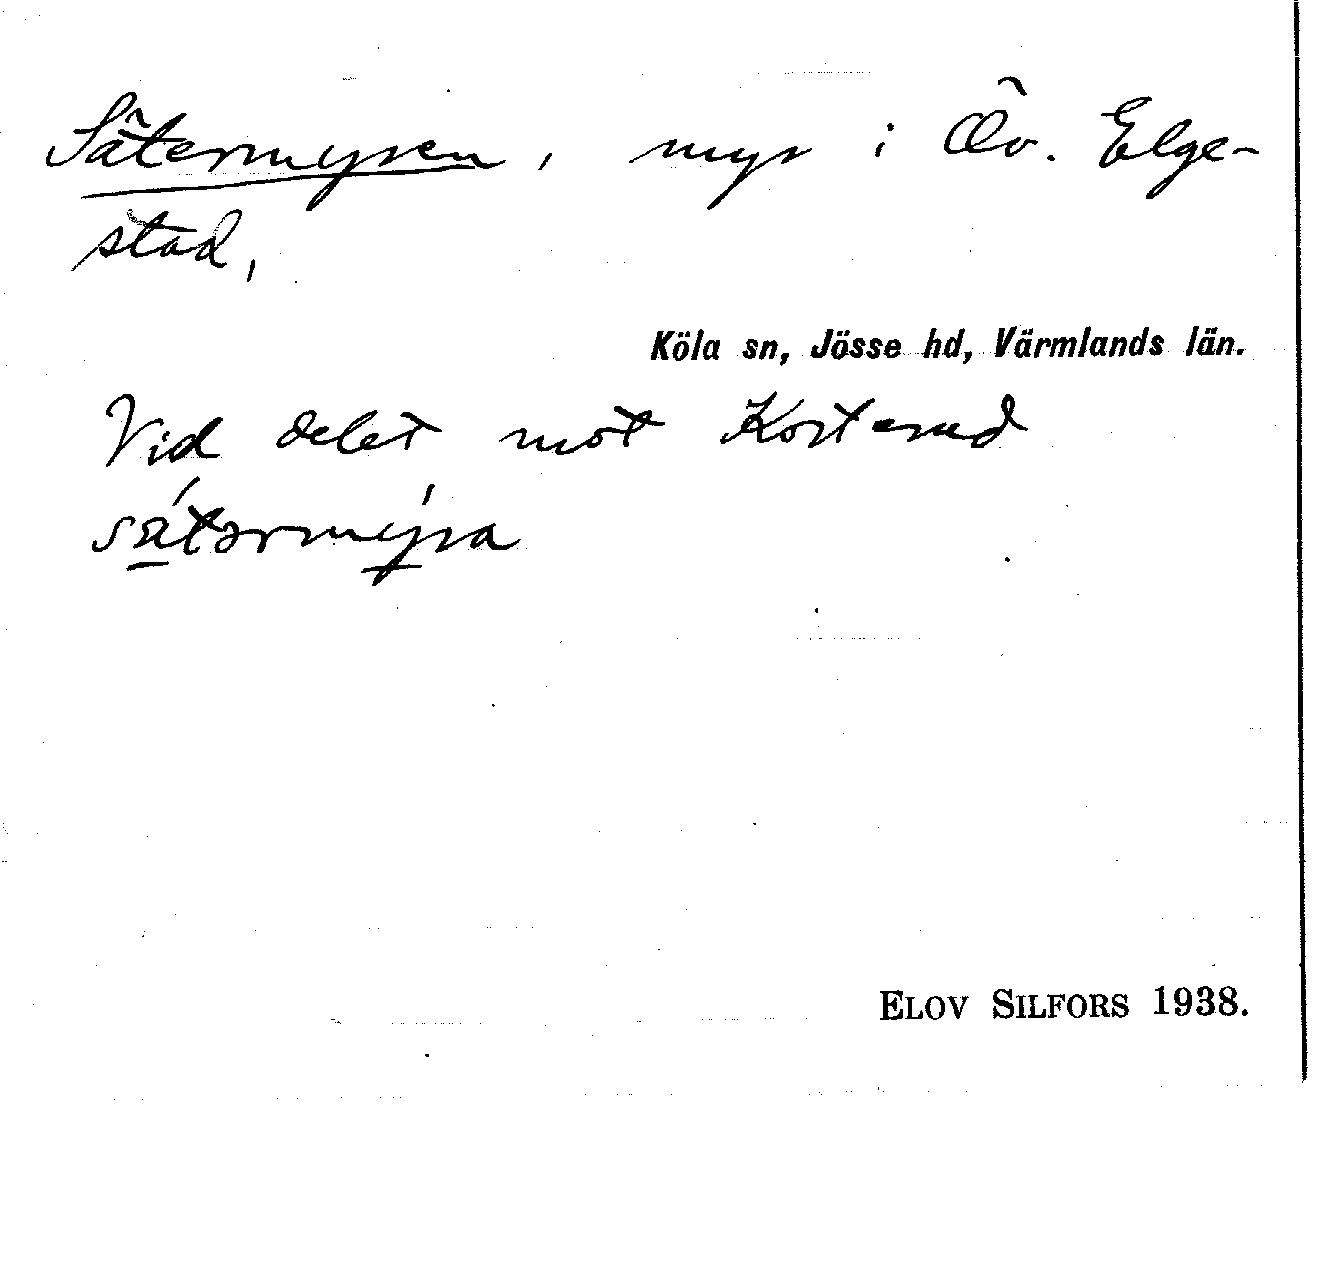 Sätermyren, myr i Öv. Elge-
stad,
Köla sn, Jösse hd, Värmlands län.
Vid delet mot Korterud
sǽtərmýra
ELOV SILFORS 1938.